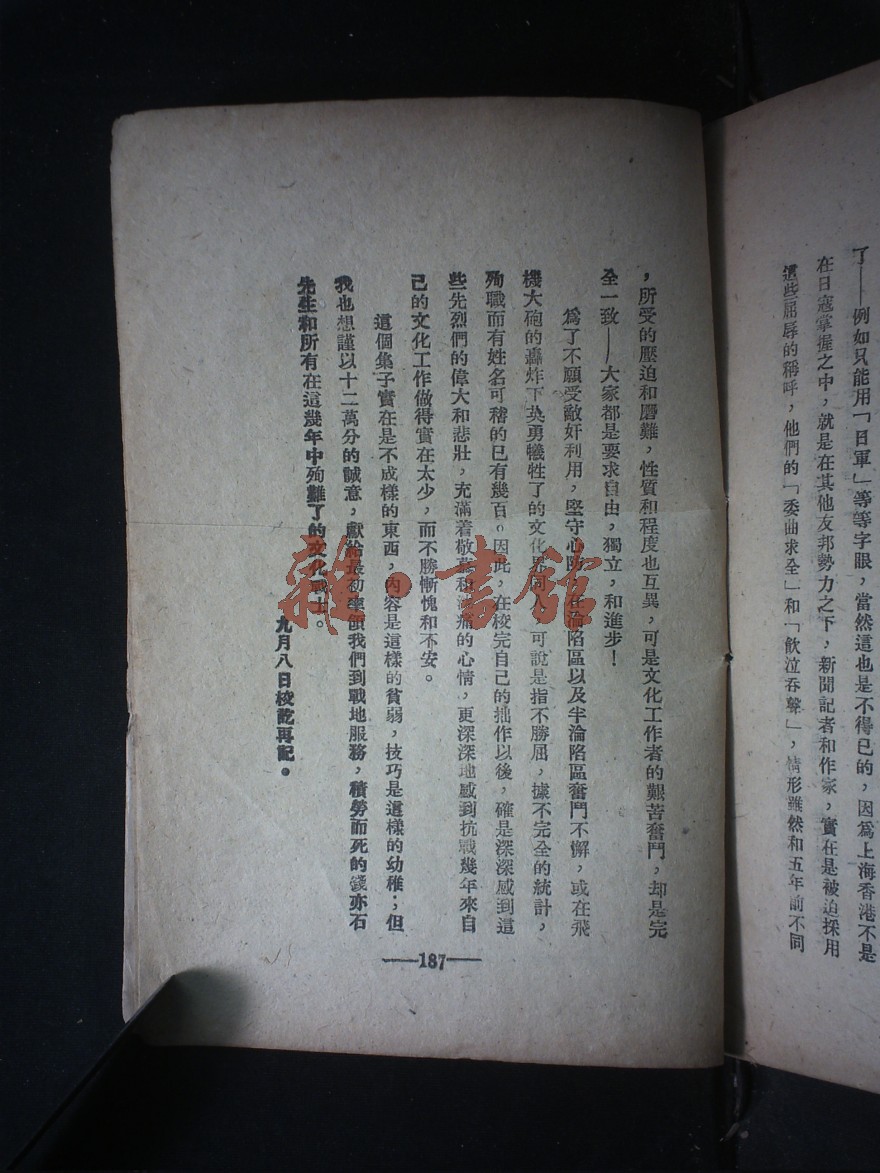 了——例如只能用「日軍」等等字眼，當然這也是不得已的，因爲上海香港不是
在日寇掌握之中，就是在其他友邦勢力之下，新聞記者和作家，實在是被迫採用
這些屈辱的稱呼，他們的「委曲求全」和「飲泣吞聲」，情形雖然和五年前不同
，所受的壓迫和磨難，性質和程度也互異，可是文化工作者的艱苦奮鬥，却是完
全一致——大家都是要求自由，獨立，和進步！
爲了不願受敵奸利用，堅守心防，在淪陷區以及半淪陷區奮鬥不懈，或在飛
機大砲的轟炸下英勇犧牲了的文化界同人，可說是指不勝屈，據不完全的統計，
殉職而有姓名可稽的已有幾百。因此，在校完自己的拙作以後，確是深深感到這
些先烈們的偉大和悲壯，充滿着敬和痛的心情，更深深地感到抗戰幾年來自
己的文化工作做得實在太少，而不勝慚愧和不安。
這個集子實在是不成樣的東西，內容是這樣的貧弱，技巧是這樣的幼稚；但
我也想謹以十二萬分的誠意，獻給最初率領我們到戰地服務，積勞而死的錢亦石
先生和所有在這幾年中殉難了的文化戰士。
九月八日校訖再記。
——187——
雜·書館